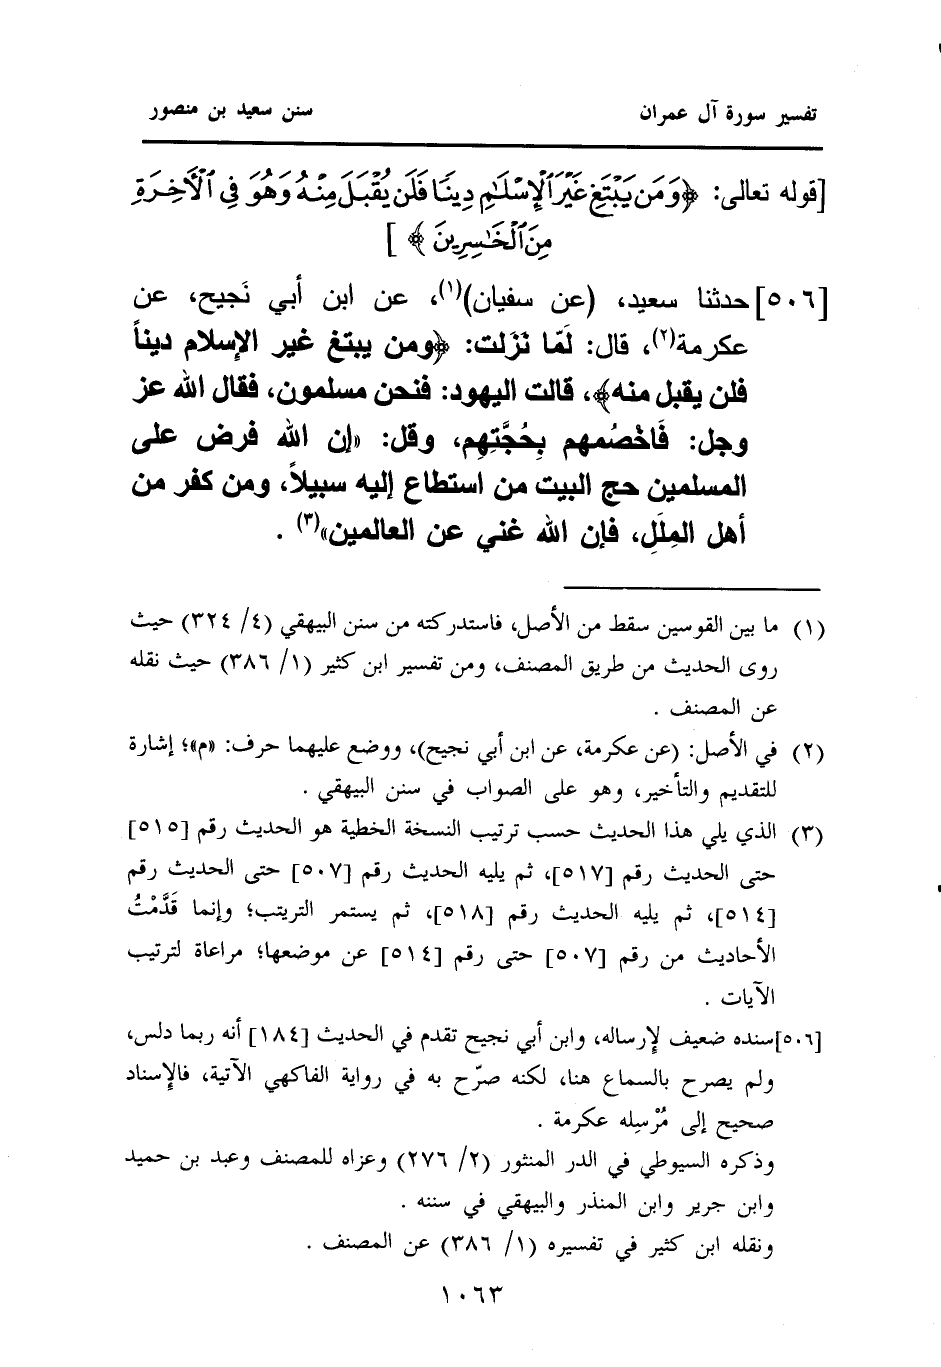 تفسير سورة آل عمران سنن سعيد بن منصور
[قوله تعالى: ﴿وَمَن يَبْتَغِ غَيْرَ ٱلْإِسْلَٰمِ دِينًا فَلَن يُقْبَلَ مِنْهُ وَهُوَ فِي ٱلْآخِرَةِ
مِنَ ٱلْخَٰسِرِينَ ﴾ ]
[٥٠٦] حدثنا سعيد، (عن سفيان)(١)، عن ابن أبي نَجيح، عن
عكرمة(٢)، قال: لَمّا نَزَلت: ﴿ومن يبتغ غير الإسلام ديناً
فلن يقبل منه﴾، قالت اليهود: فنحن مسلمون، فقال الله عز
وجل: فَاخْصُمهم بِحُجَّتِهِم، وقل: «إن الله فرض على
المسلمين حج البيت من استطاع إليه سبيلاً، ومن كفر من
أهل المِلَلِ، فإن الله غني عن العالمين»(٣) .
(١) ما بين القوسين سقط من الأصل، فاستدركته من سنن البيهقي (٤/ ٣٢٤) حيث
روى الحديث من طريق المصنف، ومن تفسير ابن كثير (١/ ٣٨٦) حيث نقله
عن المصنف .
(٢) في الأصل: (عن عكرمة، عن ابن أبي نجيح)، ووضع عليهما حرف: «م»؛ إشارة
للتقديم والتأخير، وهو على الصواب في سنن البيهقي .
(٣) الذي يلي هذا الحديث حسب ترتيب النسخة الخطية هو الحديث رقم [٥١٥]
حتى الحديث رقم [٥١٧]، ثم يليه الحديث رقم [٥٠٧] حتى الحديث رقم
[٥١٤]، ثم يليه الحديث رقم [٥١٨]، ثم يستمر التريتب؛ وإنما قَدَّمْتُ
الأحاديث من رقم [٥٠٧] حتى رقم [٥١٤] عن موضعها؛ مراعاة لترتيب
الآيات .
[٥٠٦] سنده ضعيف لإرساله، وابن أبي نجيح تقدم في الحديث [١٨٤] أنه ربما دلس،
ولم يصرح بالسماع هنا، لكنه صرّح به في رواية الفاكهي الآتية، فالإسناد
صحيح إلى مُرْسِله عكرمة .
وذكره السيوطي في الدر المنثور (٢/ ٢٧٦) وعزاه للمصنف وعبد بن حميد
وابن جرير وابن المنذر والبيهقي في سننه .
ونقله ابن كثير في تفسيره (١/ ٣٨٦) عن المصنف .
١٠٦٣